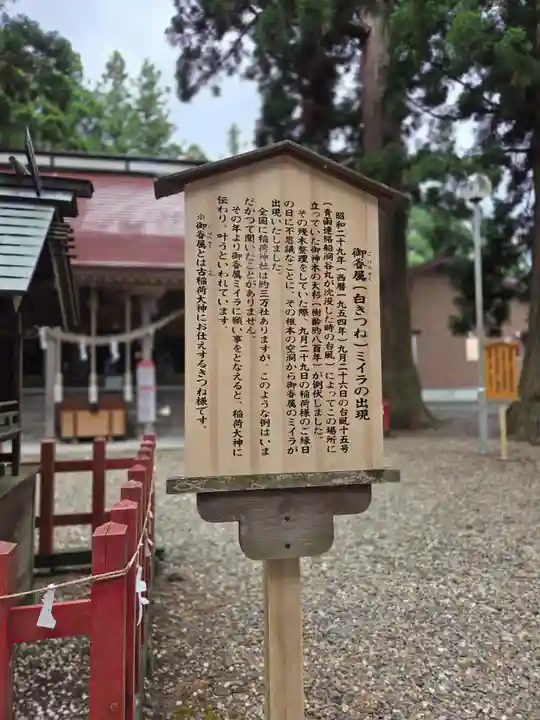 御眷属(白きつね)ミイラの出現
ごけんぞく
昭和二十九年(西暦一九五四年)九月二十六日の台風十五号
(青函連絡船洞爺丸が沈没した時の台風)によってこの場所に
立っていた御神木の大杉(樹齢約八百年)が倒伏しました。
その残木整理をしていた際、九月二十九日の稲荷様のご縁日
の日に不思議なことに、その根本の空洞から御眷属のミイラが
出現いたしました。
全国に稲荷神社は約三万社ありますが、このような例はいま
だかつて聞いたことがありません。
その年より御眷属ミイラに願い事をとなえると、稲荷大神に
伝わり、叶うといわれています。
※御眷属とは古稲荷大神にお仕えするきつね様です。